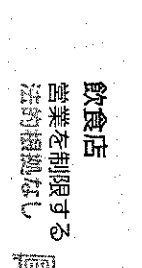 飲食店
営業を制限する
法的根拠なし